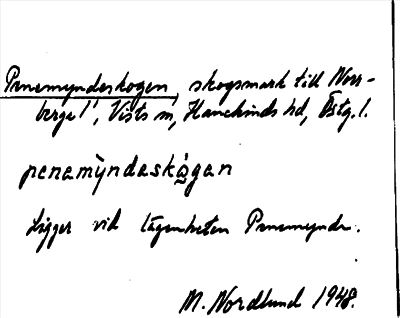 Penemyndeskogen, skogsmark till Norr-
berga 1¹, Vists sn, Hanekinds hd, Östg. l.
penamỳndaskó̱gan
Ligger vid lägenheten Penemynde.
M. Nordlund 1948.